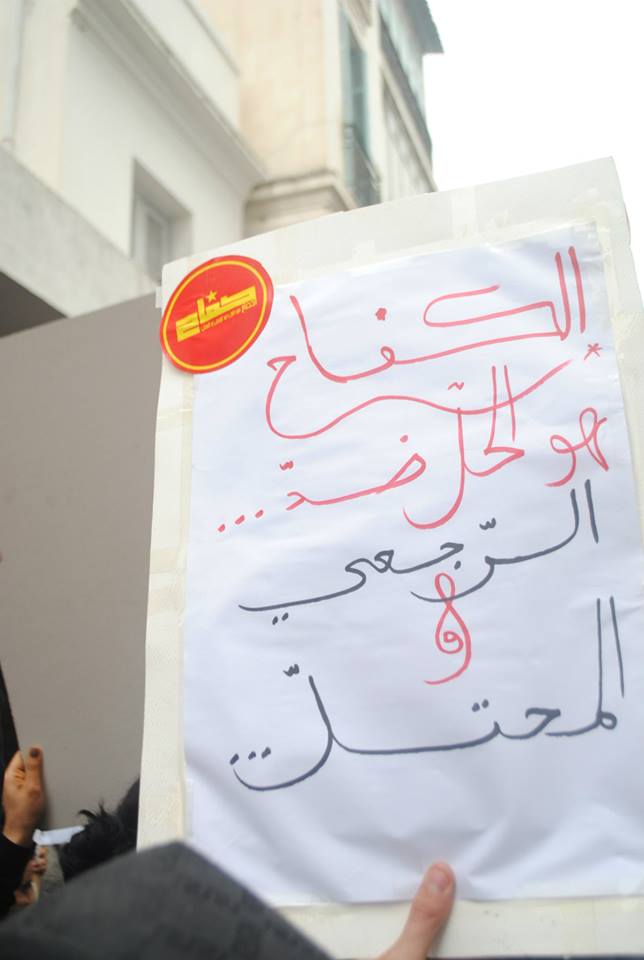 كفاح
الكفاح
* هو الحلّ ضدّ...
الرّجعي
و
المحتلّ...